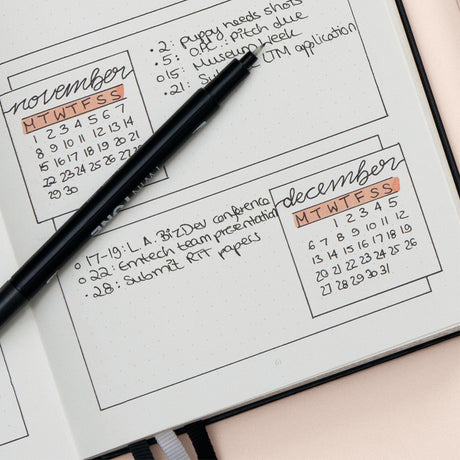 • 2: puppy needs shots
• 5: OPC: pitch due
o 15: Museum Week
• 21: application
november
M T W T F S S
1 2 3 4 5 6 7
8 9 10 11 12 13 14
15 16 17 18 19 20 21
22 23 24 25 26 27
29 30
december
M T W T F S S
1 2 3 4 5
6 7 8 9 10 11 12
13 14 15 16 17 18 19
20 21 22 23 24 25 26
27 28 29 30 31
o 17-19: L.A. BizDev conference
o 22: Emtech team presentation
• 28: Submit RTF papers